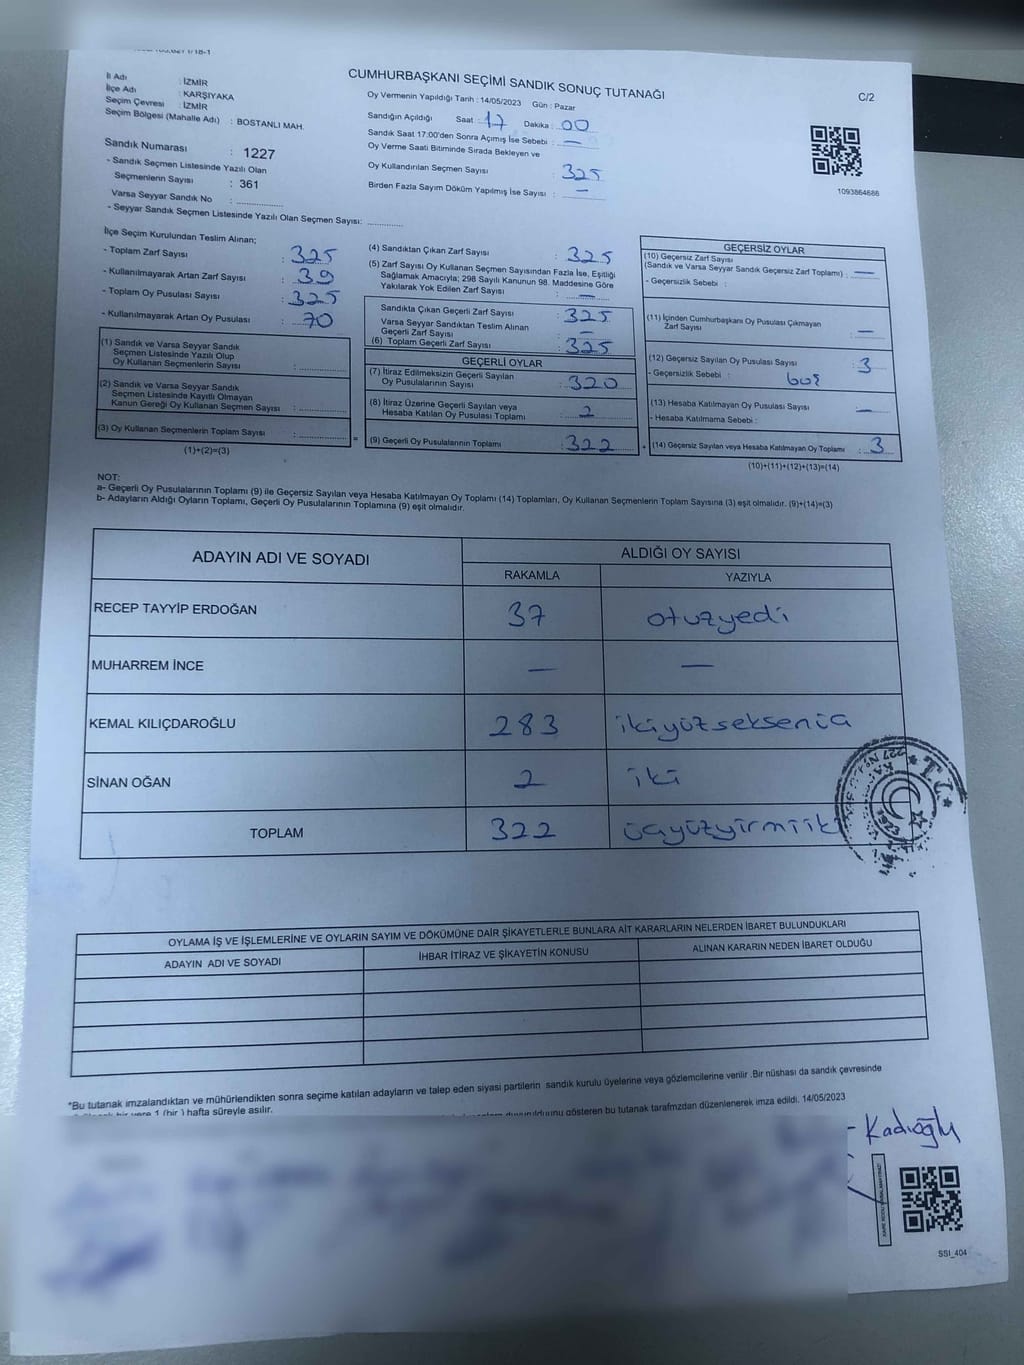 CUMHURBAŞKANI SEÇİMİ SANDIK SONUÇ TUTANAĞI
C/2
İl Adı : İZMİR
İlçe Adı : KARŞIYAKA
Seçim Çevresi : İZMİR
Seçim Bölgesi (Mahalle Adı) : BOSTANLI MAH.
Oy Vermenin Yapıldığı Tarih : 14/05/2023 Gün : Pazar
Sandığın Açıldığı Saat : 17 Dakika : 00
Sandık Saat 17:00'den Sonra Açımış İse Sebebi : —
Oy Verme Saati Bitiminde Sırada Bekleyen ve
Oy Kullandırılan Seçmen Sayısı : 325
Birden Fazla Sayım Döküm Yapılmış İse Sayısı : —
1093864686
Sandık Numarası : 1227
- Sandık Seçmen Listesinde Yazılı Olan
Seçmenlerin Sayısı : 361
Varsa Seyyar Sandık No : ..............
- Seyyar Sandık Seçmen Listesinde Yazılı Olan Seçmen Sayısı: ..............
İlçe Seçim Kurulundan Teslim Alınan;
- Toplam Zarf Sayısı : 325
- Kullanılmayarak Artan Zarf Sayısı : 39
- Toplam Oy Pusulası Sayısı : 325
- Kullanılmayarak Artan Oy Pusulası : 70
(1) Sandık ve Varsa Seyyar Sandık
Seçmen Listesinde Yazılı Olup
Oy Kullanan Seçmenlerin Sayısı : ..............
(2) Sandık ve Varsa Seyyar Sandık
Seçmen Listesinde Kayıtlı Olmayan
Kanun Gereği Oy Kullanan Seçmen Sayısı : ..............
(3) Oy Kullanan Seçmenlerin Toplam Sayısı : ..............
(1)+(2)=(3)
(4) Sandıktan Çıkan Zarf Sayısı : 325
(5) Zarf Sayısı Oy Kullanan Seçmen Sayısından Fazla İse, Eşitliği
Sağlamak Amacıyla; 298 Sayılı Kanunun 98. Maddesine Göre
Yakılarak Yok Edilen Zarf Sayısı : —
Sandıkta Çıkan Geçerli Zarf Sayısı : 325
Varsa Seyyar Sandıktan Teslim Alınan
Geçerli Zarf Sayısı : —
(6) Toplam Geçerli Zarf Sayısı : 325
GEÇERLİ OYLAR
(7) İtiraz Edilmeksizin Geçerli Sayılan
Oy Pusulalarının Sayısı : 320
(8) İtiraz Üzerine Geçerli Sayılan veya
Hesaba Katılan Oy Pusulası Toplamı : 2
= (9) Geçerli Oy Pusulalarının Toplamı : 322
GEÇERSİZ OYLAR
(10) Geçersiz Zarf Sayısı
(Sandık ve Varsa Seyyar Sandık Geçersiz Zarf Toplamı) : —
- Geçersizlik Sebebi :
(11) İçinden Cumhurbaşkanı Oy Pusulası Çıkmayan
Zarf Sayısı : —
(12) Geçersiz Sayılan Oy Pusulası Sayısı : 3
- Geçersizlik Sebebi : boş
(13) Hesaba Katılmayan Oy Pusulası Sayısı : —
- Hesaba Katılmama Sebebi :
+ (14) Geçersiz Sayılan veya Hesaba Katılmayan Oy Toplamı : 3
(10)+(11)+(12)+(13)=(14)
NOT:
a- Geçerli Oy Pusulalarının Toplamı (9) ile Geçersiz Sayılan veya Hesaba Katılmayan Oy Toplamı (14) Toplamları, Oy Kullanan Seçmenlerin Toplam Sayısına (3) eşit olmalıdır. (9)+(14)=(3)
b- Adayların Aldığı Oyların Toplamı, Geçerli Oy Pusulalarının Toplamına (9) eşit olmalıdır.
ADAYIN ADI VE SOYADI ALDIĞI OY SAYISI
RAKAMLA YAZIYLA
RECEP TAYYİP ERDOĞAN 37 otuzyedi
MUHARREM İNCE — —
KEMAL KILIÇDAROĞLU 283 ikiyüzseksenüç
SİNAN OĞAN 2 iki
TOPLAM 322 üçyüzyirmiiki
OYLAMA İŞ VE İŞLEMLERİNE VE OYLARIN SAYIM VE DÖKÜMÜNE DAİR ŞİKAYETLERLE BUNLARA AİT KARARLARIN NELERDEN İBARET BULUNDUKLARI
ADAYIN ADI VE SOYADI İHBAR İTİRAZ VE ŞİKAYETİN KONUSU ALINAN KARARIN NEDEN İBARET OLDUĞU
*Bu tutanak imzalandıktan ve mühürlendikten sonra seçime katılan adayların ve talep eden siyasi partilerin sandık kurulu üyelerine veya gözlemcilerine verilir .Bir nüshası da sandık çevresinde
bir yere 1 (bir ) hafta süreyle asılır.
gösteren bu tutanak tarafmzdan düzenlenerek imza edildi. 14/05/2023
- Kadıoğlu
SSI_404